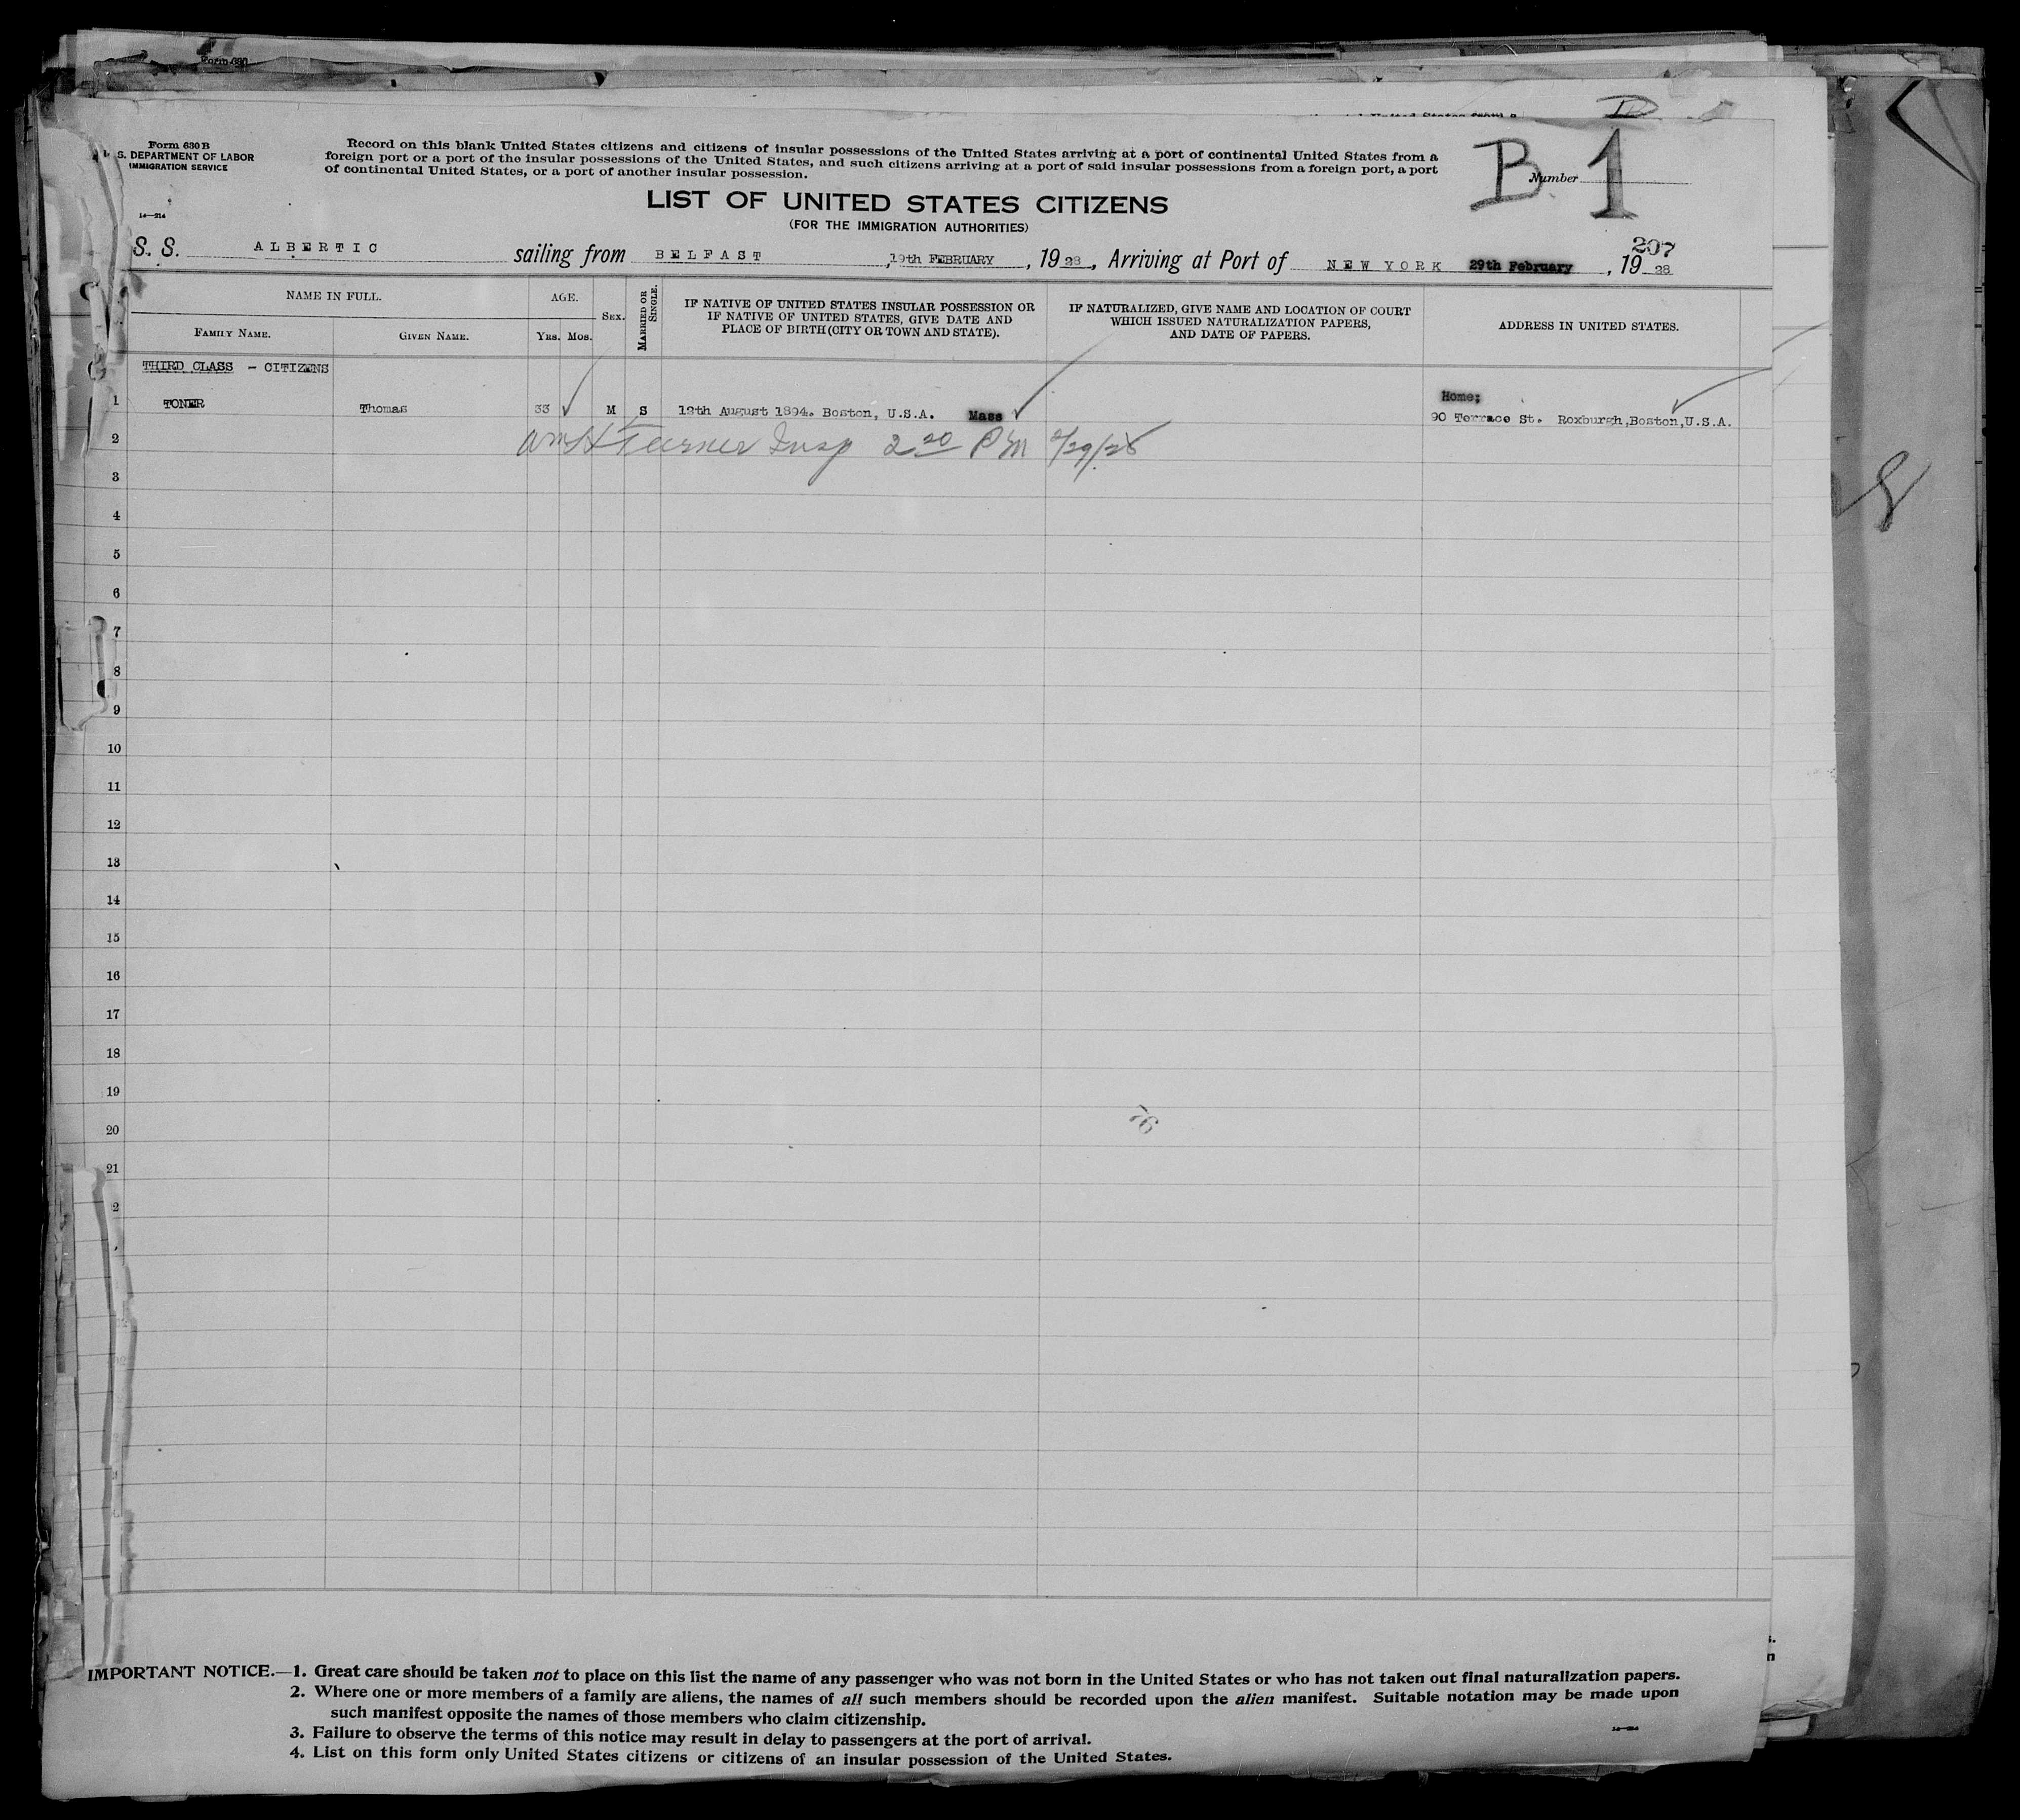 Form 630
Form 630 B
S. DEPARTMENT OF LABOR
IMMIGRATION SERVICE
14—214
Record on this blank United States citizens and citizens of insular possessions of the United States arriving at a port of continental United States from a
foreign port or a port of the insular possessions of the United States, and such citizens arriving at a port of said insular possessions from a foreign port, a port
of continental United States, or a port of another insular possession.
B. Number 1
LIST OF UNITED STATES CITIZENS
(FOR THE IMMIGRATION AUTHORITIES)
207
S. S. ALBERTIC sailing from BELFAST, 19th FEBRUARY, 1928, Arriving at Port of NEW YORK 29th February, 1928
NAME IN FULL.
FAMILY NAME.
GIVEN NAME.
AGE.
YRS. MOS.
SEX.
MARRIED OR SINGLE.
IF NATIVE OF UNITED STATES INSULAR POSSESSION OR
IF NATIVE OF UNITED STATES, GIVE DATE AND
PLACE OF BIRTH (CITY OR TOWN AND STATE).
IF NATURALIZED, GIVE NAME AND LOCATION OF COURT
WHICH ISSUED NATURALIZATION PAPERS,
AND DATE OF PAPERS.
ADDRESS IN UNITED STATES.
THIRD CLASS - CITIZENS
Home;
1 TONER Thomas 33 M S August 1894. Boston, U.S.A. Mass 90 Terrace St. Roxburgh, Boston, U.S.A.
2 Turner Insp 2 20 PM 2/29/28
3
4
5
6
7
8
9
10
11
12
13
14
15
16
17
18
19
76
20
21
2
IMPORTANT NOTICE.—1. Great care should be taken not to place on this list the name of any passenger who was not born in the United States or who has not taken out final naturalization papers.
2. Where one or more members of a family are aliens, the names of all such members should be recorded upon the alien manifest. Suitable notation may be made upon
such manifest opposite the names of those members who claim citizenship.
3. Failure to observe the terms of this notice may result in delay to passengers at the port of arrival.
4. List on this form only United States citizens or citizens of an insular possession of the United States.